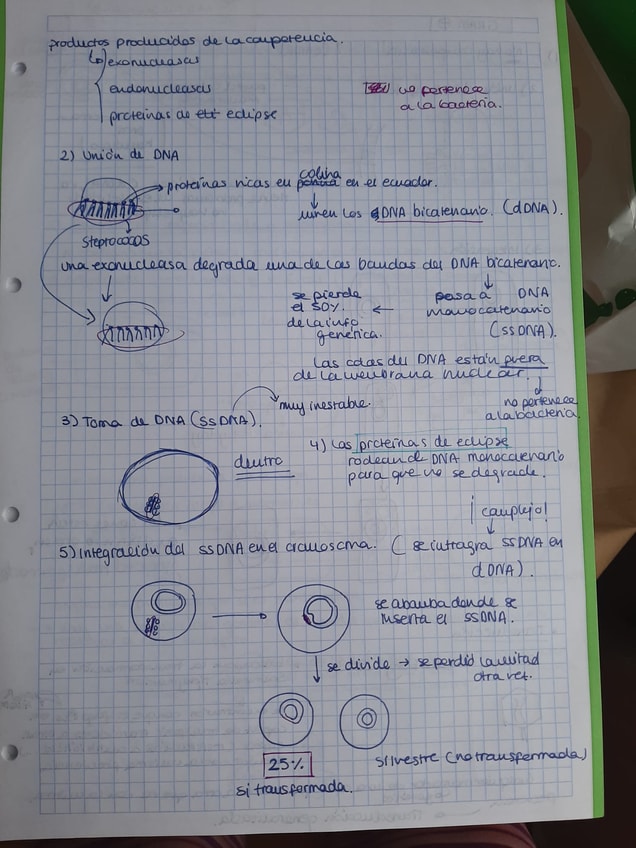 productos producidos de la competencia.
exonucleasas
endonucleasas
proteínas de eclipse
no pertenece
a la bacteria.
2) Unión de DNA
colina
proteínas ricas en en el ecuador.
unen los DNA bicatenario. (dDNA).
Steptococos
una exonucleasa degrada una de las bandas del DNA bicatenario.
se pierde
el 50%
de la info
genética.
pasa a DNA
monocatenario
(ssDNA).
Las colas del DNA están fuera
de la membrana nuclear.
no pertenece
a la bacteria.
muy inestable.
3) Toma de DNA (ssDNA).
dentro
4) Las proteínas de eclipse
rodean el DNA monocatenario
para que no se degrade.
¡complejo!
5) Integración del ssDNA en el cromosoma. (se intragra ssDNA en
dDNA).
se abomba donde se
inserta el ssDNA.
se divide → se perdió la mitad
otra vez.
25%
si transformada.
silvestre (no transformada)